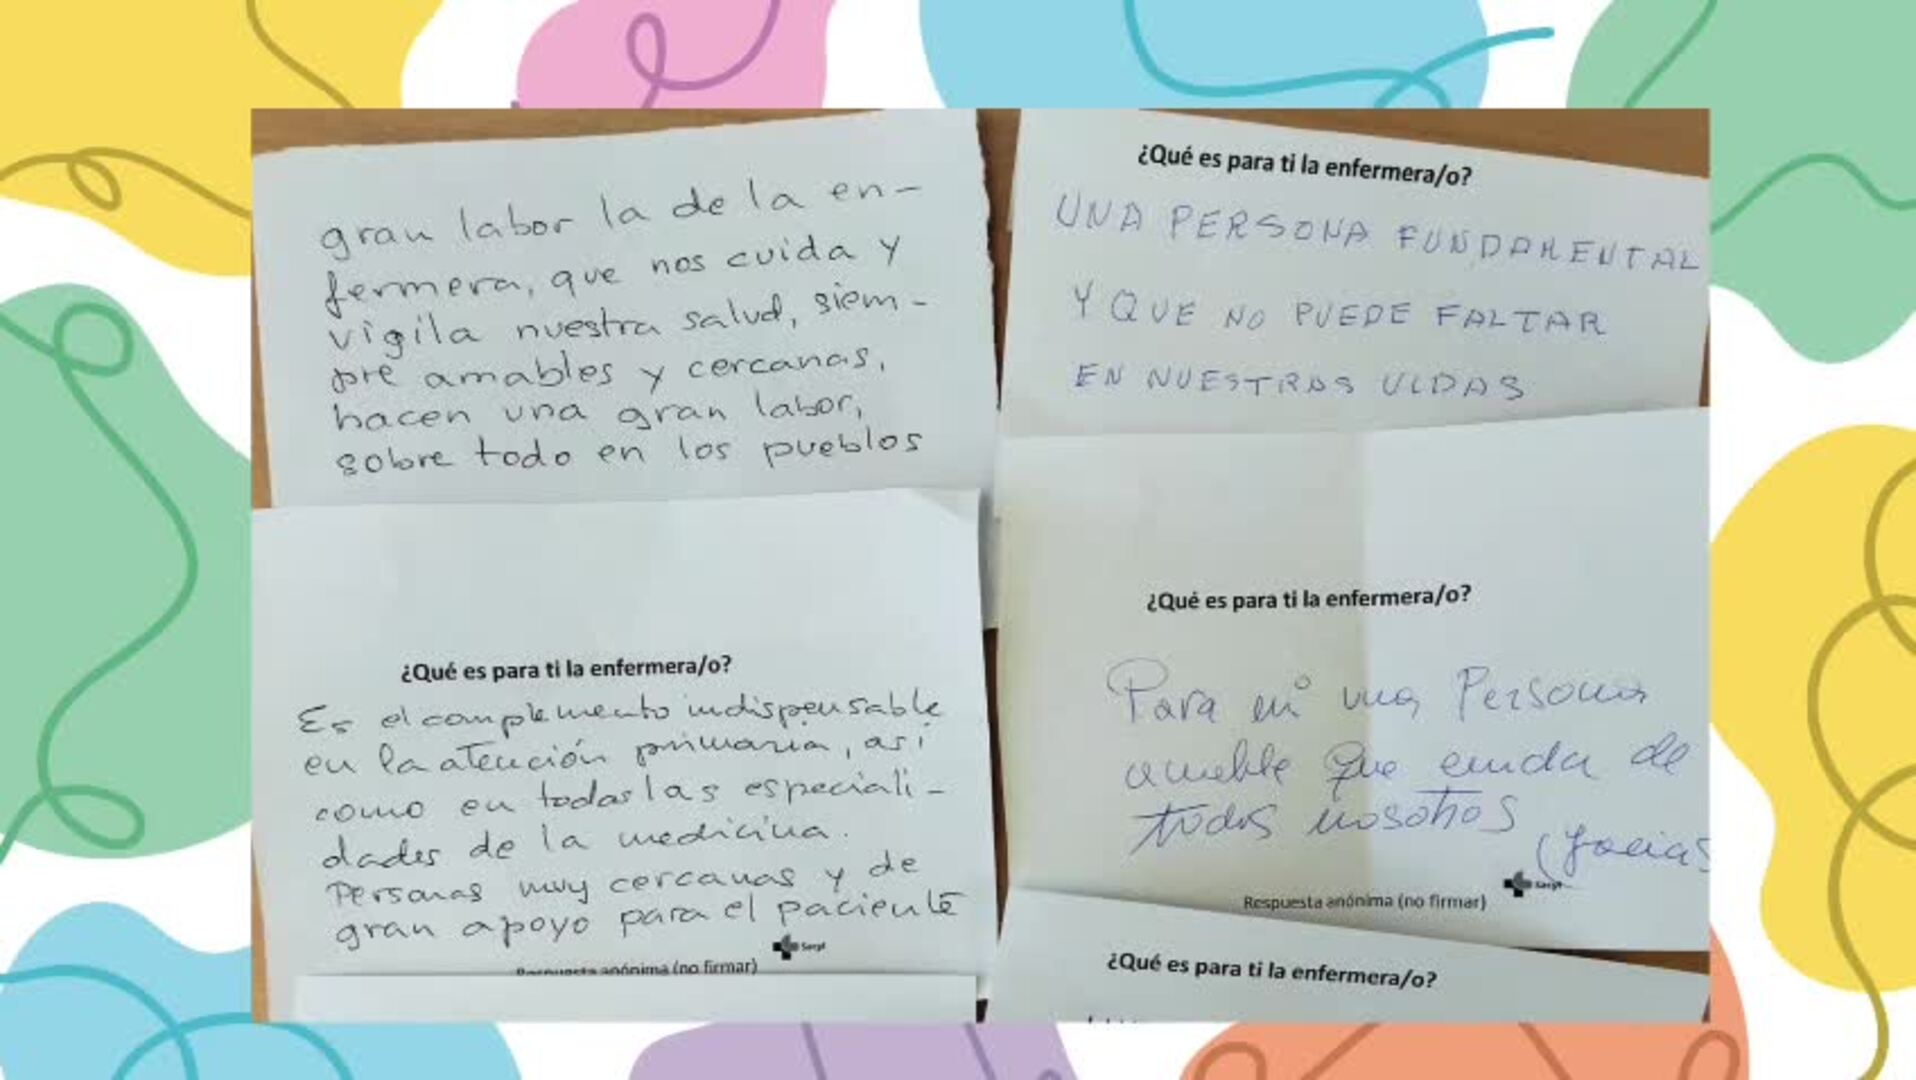 gran labor la de la en-
fermera, que nos cuida y
vigila nuestra salud, siem-
pre amables y cercanas,
hacen una gran labor,
sobre todo en los pueblos
¿Qué es para ti la enfermera/o?
UNA PERSONA FUNDAMENTAL
Y QUE NO PUEDE FALTAR
EN NUESTRAS VIDAS
¿Qué es para ti la enfermera/o?
Es el complemento indispensable
en la atención primaria, así
como en todas las especiali-
dades de la medicina.
Personas muy cercanas y de
gran apoyo para el paciente
Sacyl
Respuesta anónima (no firmar)
¿Qué es para ti la enfermera/o?
Para mi una Persona
amable que cuida de
todos nosotros
(gracias
Sacyl
Respuesta anónima (no firmar)
¿Qué es para ti la enfermera/o?